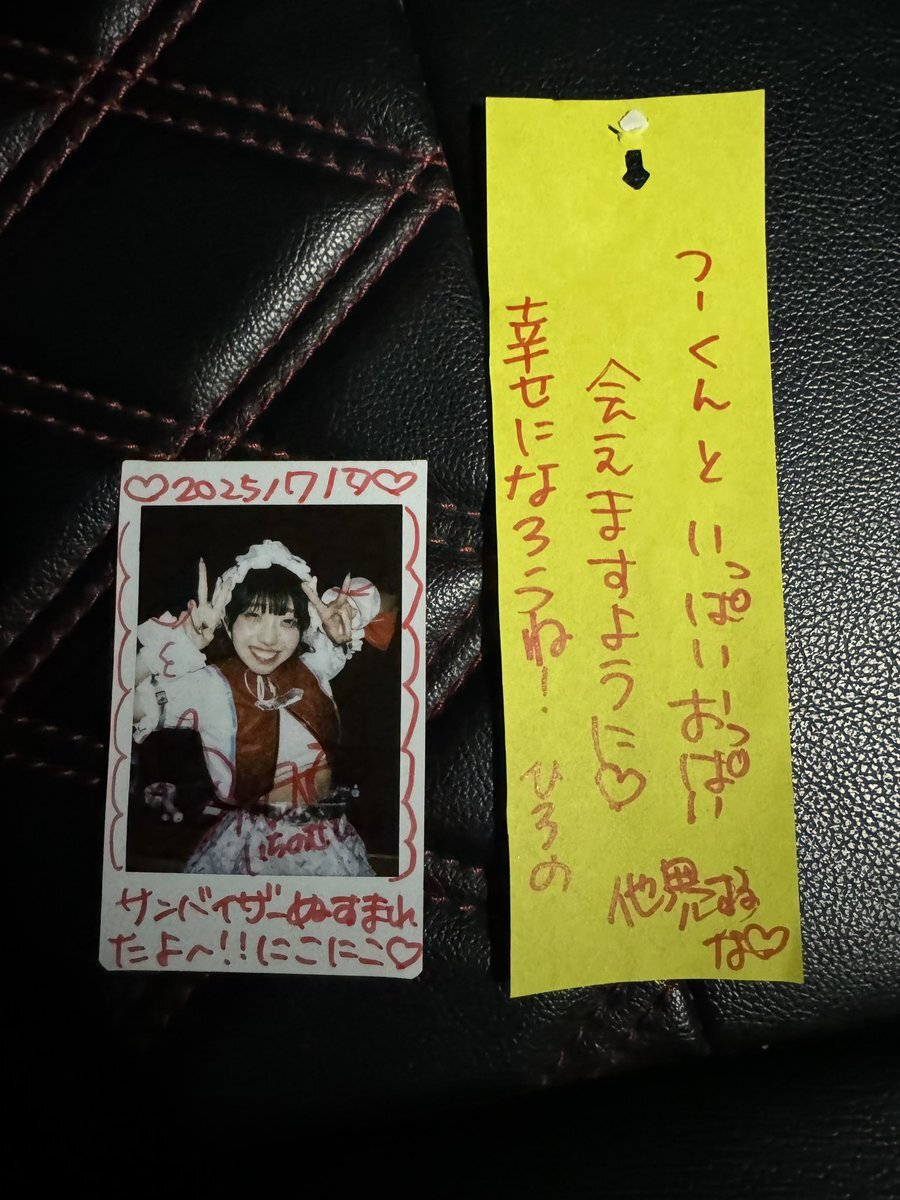 ♡2025/7/19♡
サンバイザーぬすまれ
たよ〜!!にこにこ♡
つーくんといっぱいおっぱい
会えますように♡
幸せになろうね!ひろの
他界すん
な♡